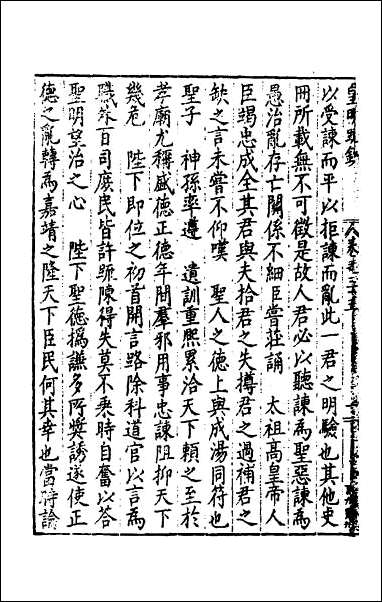 皇明疏鈔
以受諫而平以拒諫而亂此一君之明驗也其他史
冊所載無不可徵是故人君必以聽諫為聖惡諫為
愚治亂存亡關係不細臣嘗莊誦　太祖高皇帝人
臣竭忠成全其君與夫拾君之失撙君之過補君之
缺之言未嘗不仰嘆　聖人之德上與成湯同符也
聖子　神孫率遵　遺訓重熙累洽天下賴之至於
孝廟尤稱盛德正德年間羣邪用事忠諫阻抑天下
幾危　陛下即位之初首開言路除科道官以言為
職外百司庶民皆許䟽陳得失莫不乘時自奮以答
聖明望治之心　陛下聖德撝謙多所獎誘遂使正
德之亂轉為嘉靖之隆天下臣民何其幸也當時論